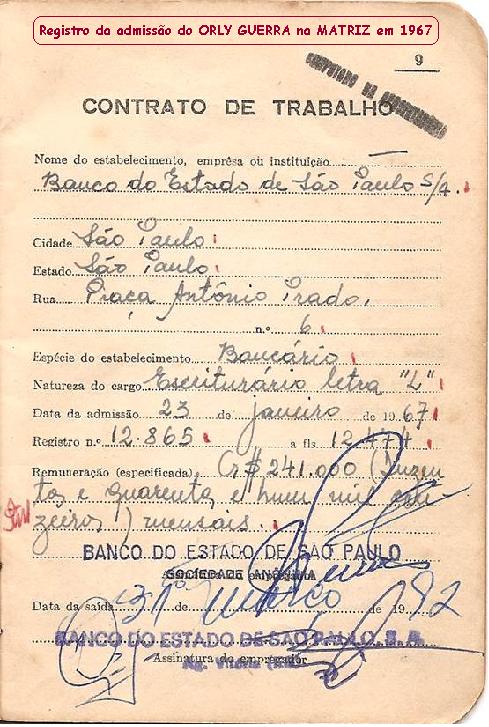 Registro da admissão do ORLY GUERRA na MATRIZ em 1967
9
CONTRATO DE TRABALHO
Nome do estabelecimento, emprêsa ou instituição
Banco do Estado de São Paulo S/a.
Cidade São Paulo
Estado São Paulo
Rua Praça Antônio Prado,
n.º 6
Espécie do estabelecimento Bancário
Natureza do cargo Escriturário letra "L"
Data da admissão 23 de janeiro de 1967
Registro n.º 12.865 a fls 12.474
Remuneração (especificada) Cr$ 241.000 (Duzen
tos e quarenta e hum mil cru
zeiros) mensais.
BANCO DO ESTADO DE SÃO PAULO
SOCIEDADE ANÔNIMA
Data da saída 31 de março de 1992
BANCO DO ESTADO DE SÃO PAULO, S. A.
Assinatura do empregador